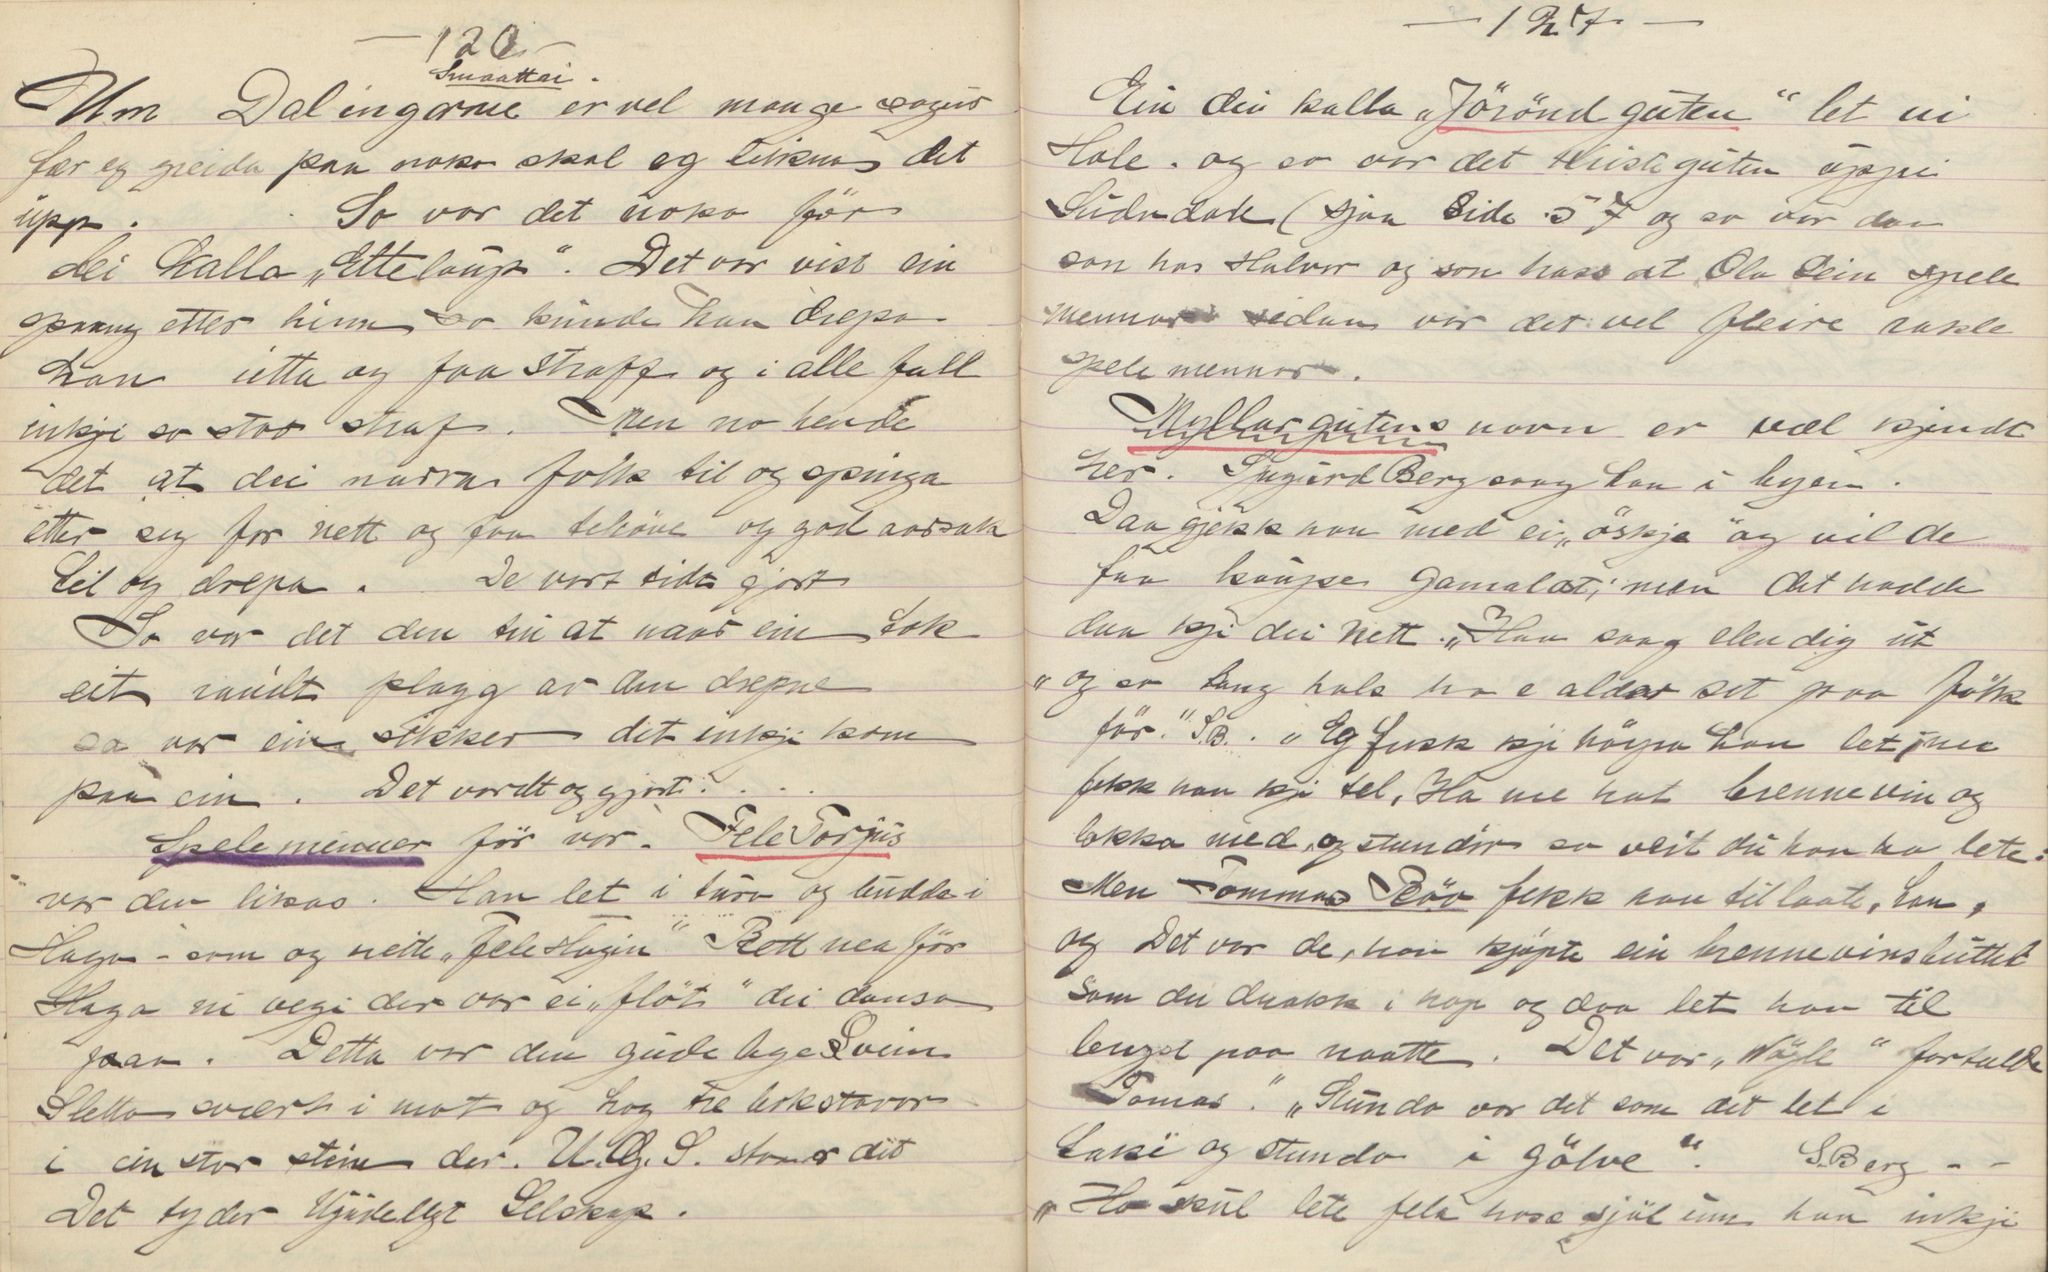 — 120 —
Smaattai.
Um Dalingarne er vel mange sogur
fær eg greida paa noko skal eg teikna det
upp. So var det noko för
dei kalla „Etteløup“. Det var vist ein
sprang etter hinn so kunde han drepa
han utta og faa straff og i alle fall
inkji so stor straf. Men no hende
det at dei narra folk til og springa
etter seg for nett og faa behöve og god aarsak
til og drepa. De vart tidt gjort
So var det den tru at naar ein tok
eit raudt plagg av den drepne
so var ein sikker det inkji kom
paa ein. Det vardt og gjort. . . .
Spelemenner för var. Fele Torjus
var den likas. Han let i turo og budde i
Haga - som og heite „Felestugin“ Rett nea för
Haga ni vegi der var ei „flöt“ dei dansa
paa. Detta var den gudelege Svein
Sletto svært i mot og hog tre bokstavar
i ein stor stein der. U. G. S. staar det
Det tyder Ugudeligt Selskap.
— 127 —
Ein dei kalla „Jörönd guten“ let ni
Hole. og so var det Kristiguten uppi
Sudndale (sjaa Side 57 og so var daa
son has Halvor og son hass at Ola Svein spele
mennar sidan var det vel fleire rakle
spelemennar.
Myllargutens navn er væl kjendt
her. Sjugurd Berg saag han i byen.
Daa gjekk han med ei „öskje“ og vilde
faa kaupe gamalost; men det hadde
daa kji dei nett. „Han saag elendig ut
„og so lang hals ha e alder set paa folk
för.“ S.B. „Eg fekk kji höyra han let, me
fekk han kji tel, Ha me hat brennevin og
lokka med, og stundir so veit du han ha lete:
Men Tommas Röv fekk han til laate, han,
og Det var de, han kjöpte ein brennevinsbuttel
som dei drakk i hop og daa let han til
lengst paa naatte. Det var „Nögle“ fortalde
Tomas. „Stundo var det som det let i
taki og stundo i gölve“. S. Berg - -
„Ha skul lete fela hass sjöl um han inkji